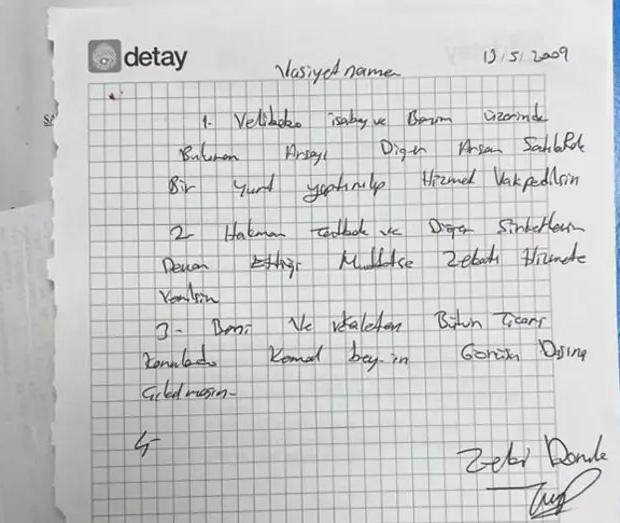 detay
Vasiyetname
13/5/2009
1. Velibaba isabey ve Benim üzerinde
Bulunan Arsayı Diğer Arsan Satılıp
Bir yurt yaptırılıp Hizmet Vakfedilsin
2 Hakman ve Diğer Şirketlerin
Devam Ettiği Müddetçe Zekatı Hizmete
Verilsin
3- Beni Ve vekaleten Bütün Ticari
Konularda Kemal bey-in Görüşü Dışına
Çıkılmasın-
4-
Zeki